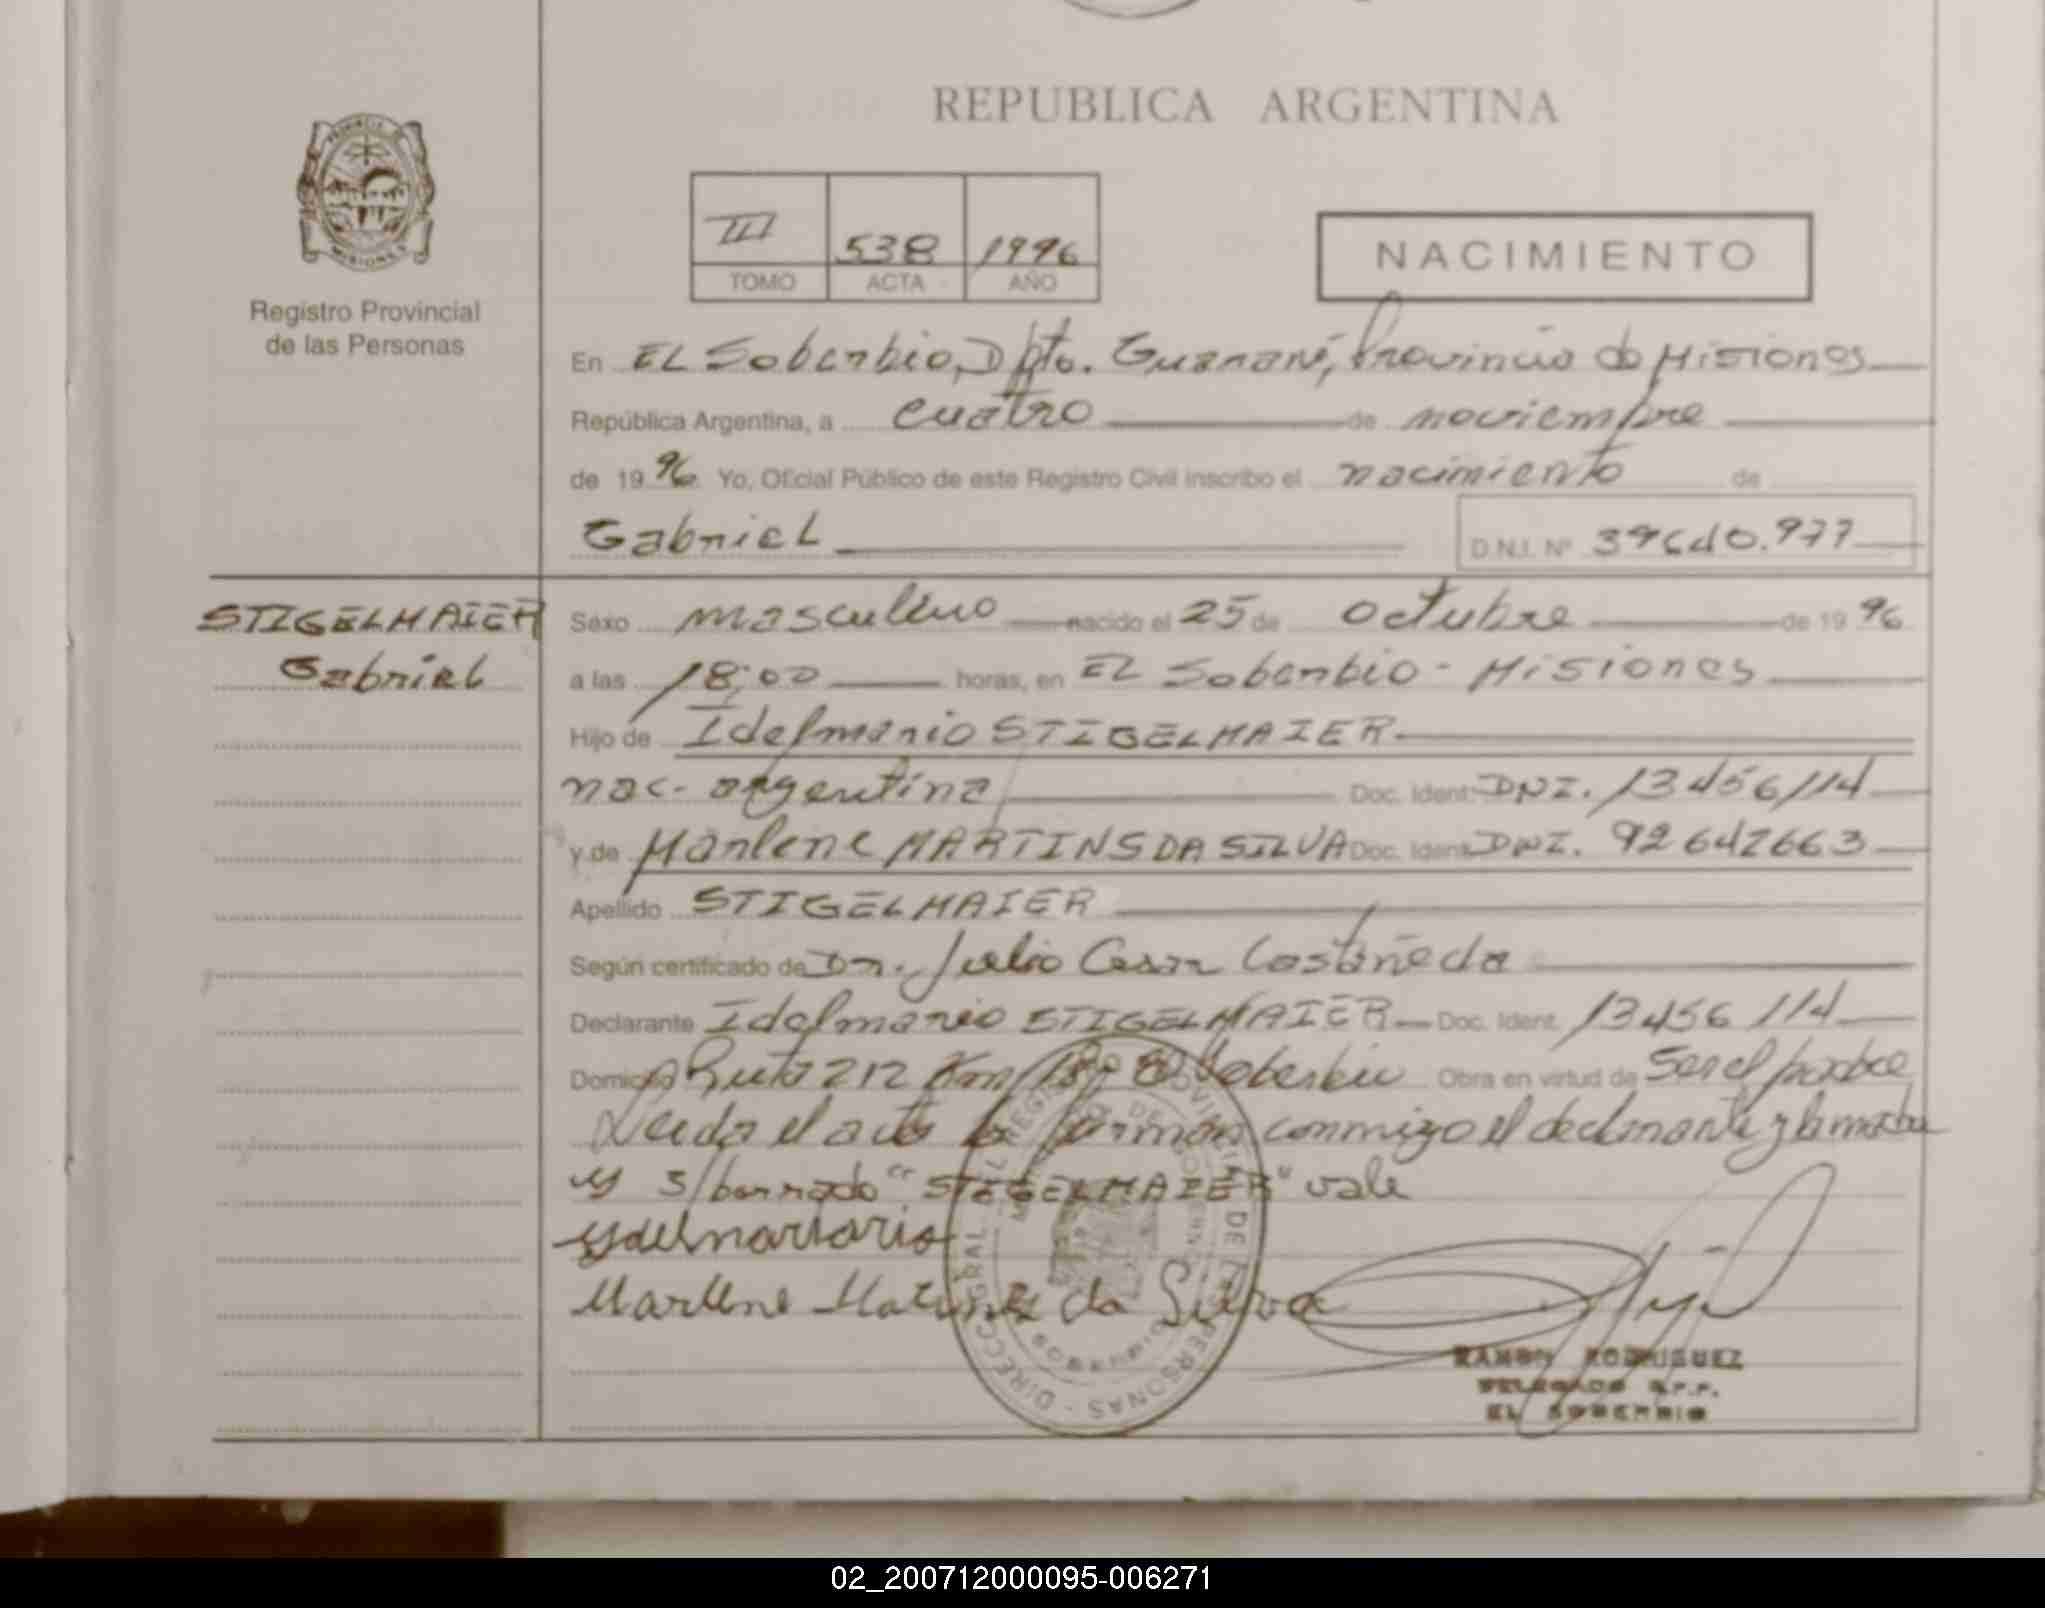 REPUBLICA ARGENTINA
PROVINCIA D
MISIONES
Registro Provincial
de las Personas
III 538 1996
TOMO ACTA AÑO
NACIMIENTO
En EL Soberbio, Dpto. Guaraní, Provincia de Misiones
República Argentina, a cuatro de noviembre
de 1996 Yo, Oficial Público de este Registro Civil inscribo el nacimiento de
Gabriel D.N.I. Nº 39640.977
STIGELMAIER
Gabriel
Sexo masculino nacido el 25 de Octubre de 1996
a las 18,00 horas, en EL Soberbio - Misiones
Hijo de Idelmario STIGELMAIER
nac. argentina Doc. Ident. DNI. 13456114
y de Marlene MARTINS DA SILVA Doc. Ident. DNI. 92642663
Apellido STIGELMAIER
Según certificado de Dr. Julio Cesar Castañeda
Declarante Idelmario STIGELMAIER Doc. Ident. 13456114
Domicilio Ruta 212 Km 18 Soberbio Obra en virtud de Ser el padre
Leida el acta la firman conmigo el declarante y la madre
s/borrado "STIGELMAIER" vale
Marlene da Silva
DIRECC GRAL DEL REGISTRO PROVINCIAL DE LAS PERSONAS
SOBERBIO
RAMON RODRIGUEZ
DELEGADO R.P.P.
EL SOBERBIO
02_200712000095-006271